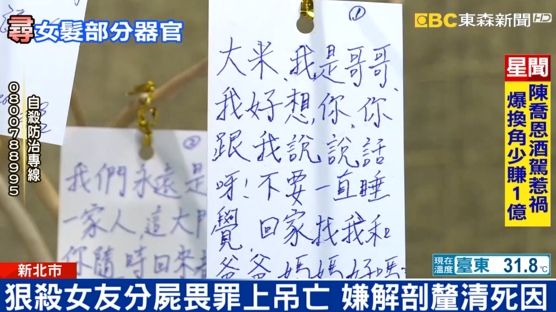 尋女髮部分器官
EBC東森新聞HD
自殺防治專線
0800788995
①
大米,我是哥哥、
我好想,你,你
跟我說說話
呀!不要一直睡
覺,回家找我和
爸爸媽媽好嗎
②
我們永遠是
一家人,這大門
你隨時回來
星聞
陳喬恩酒駕惹禍
爆換角少賺1億
現在溫度
臺東
31.8℃
新北市
狠殺女友分屍畏罪上吊亡 嫌解剖釐清死因